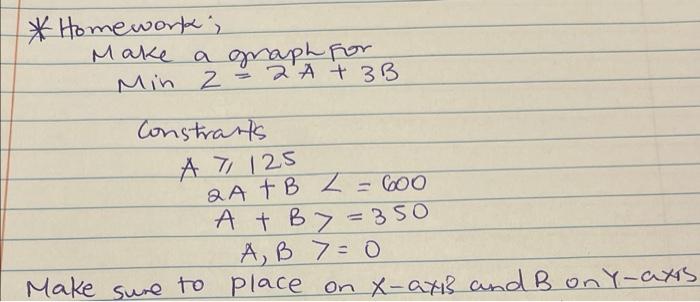 * Homework;
Make a graph For
Min Z = 2A + 3B
Constrants
A ⩾ 125
2A + B < = 600
A + B > = 350
A, B > = 0
Make sure to place on X-axis and B on Y-axis